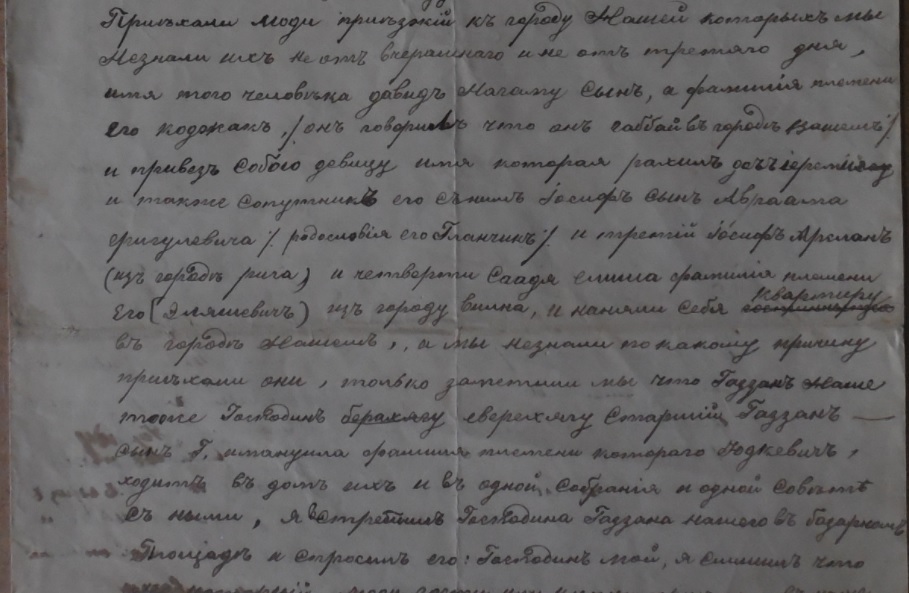 Приѣхали люди приѣзжій къ городу Нашей которыхъ мы
Незнали ихъ не отъ вчерашнаго и не отъ третяго дня,
имя того человѣка давидъ Нагаму Сынъ, а фамилія племени
Его кодокакъ, /онъ говорилъ что онъ габбай въ городъ вашемъ/
и привезъ собою девицу имя которая рахилъ дочъ
и также сопутникъ его съ нимъ Іосифъ сынъ Авраама
ѳригулевича /. родословія его Гланчинъ /. и третій Іосифъ Арсланъ
(изъ городъ рига) и четверти Саадя елиша фамилія племени
Его (Эляшевичъ) изъ городу вилна, и наняли себя квартиру
въ городъ Нашемъ, и мы незнали по какому причину
приѣхали они, только заметили мы что Газзанъ Наше
тоже Господинъ берахягу старшій Газзанъ —
сынъ Г. имануила фамилія племени котораго Юдкевичъ,
ходитъ въ домъ ихъ и въ одной собранія и одной совѣтѣ
съ ными, я встретилъ Господина Газзана нашего въ базарномъ
Площадъ и спросилъ его: Господинъ мой, я слишилъ что